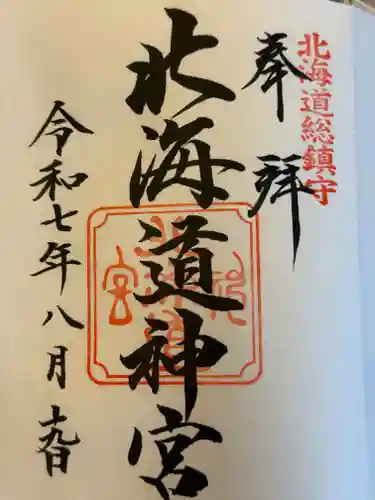 北海道総鎮守
奉拝
北海道神宮
令和七年八月十九日